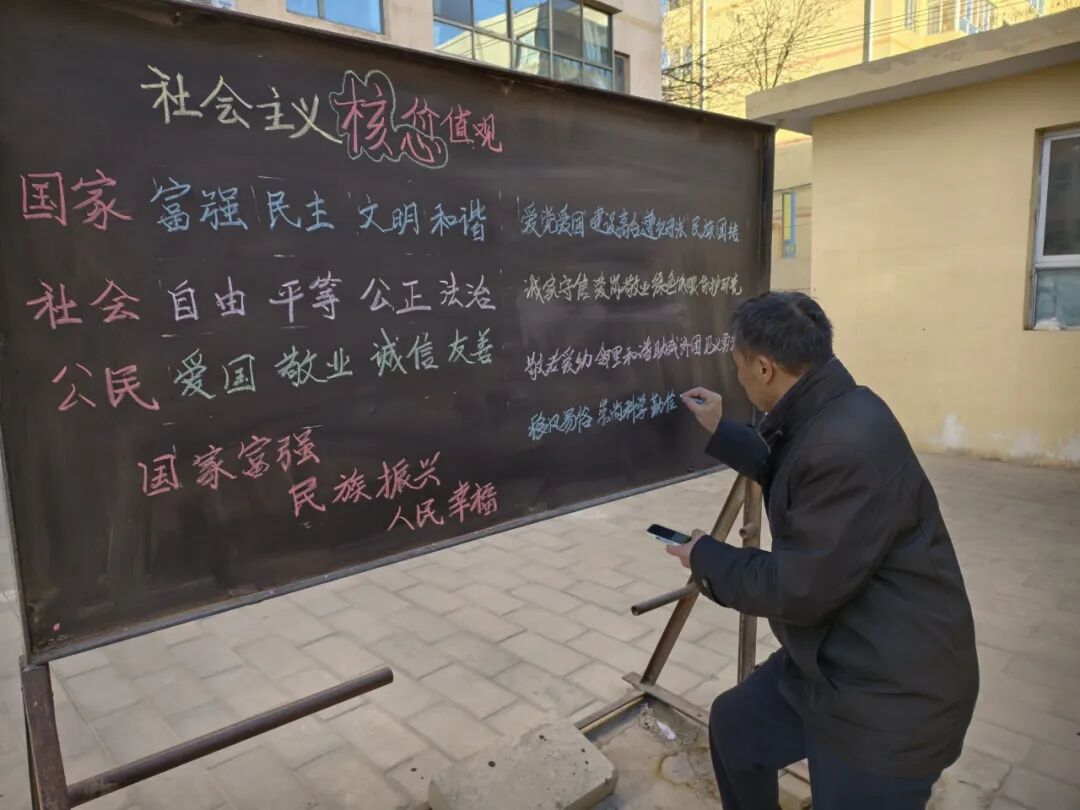 社会主义核心价值观
国家 富强 民主 文明 和谐
社会 自由 平等 公正 法治
公民 爱国 敬业 诚信 友善
国家富强
民族振兴
人民幸福
爱党爱国 建设高台 遵纪守法 民族团结
诚实守信 爱岗敬业 绿色 保护环境
敬老爱幼 邻里和谐 见义勇
移风易俗 崇尚科学 勤俭